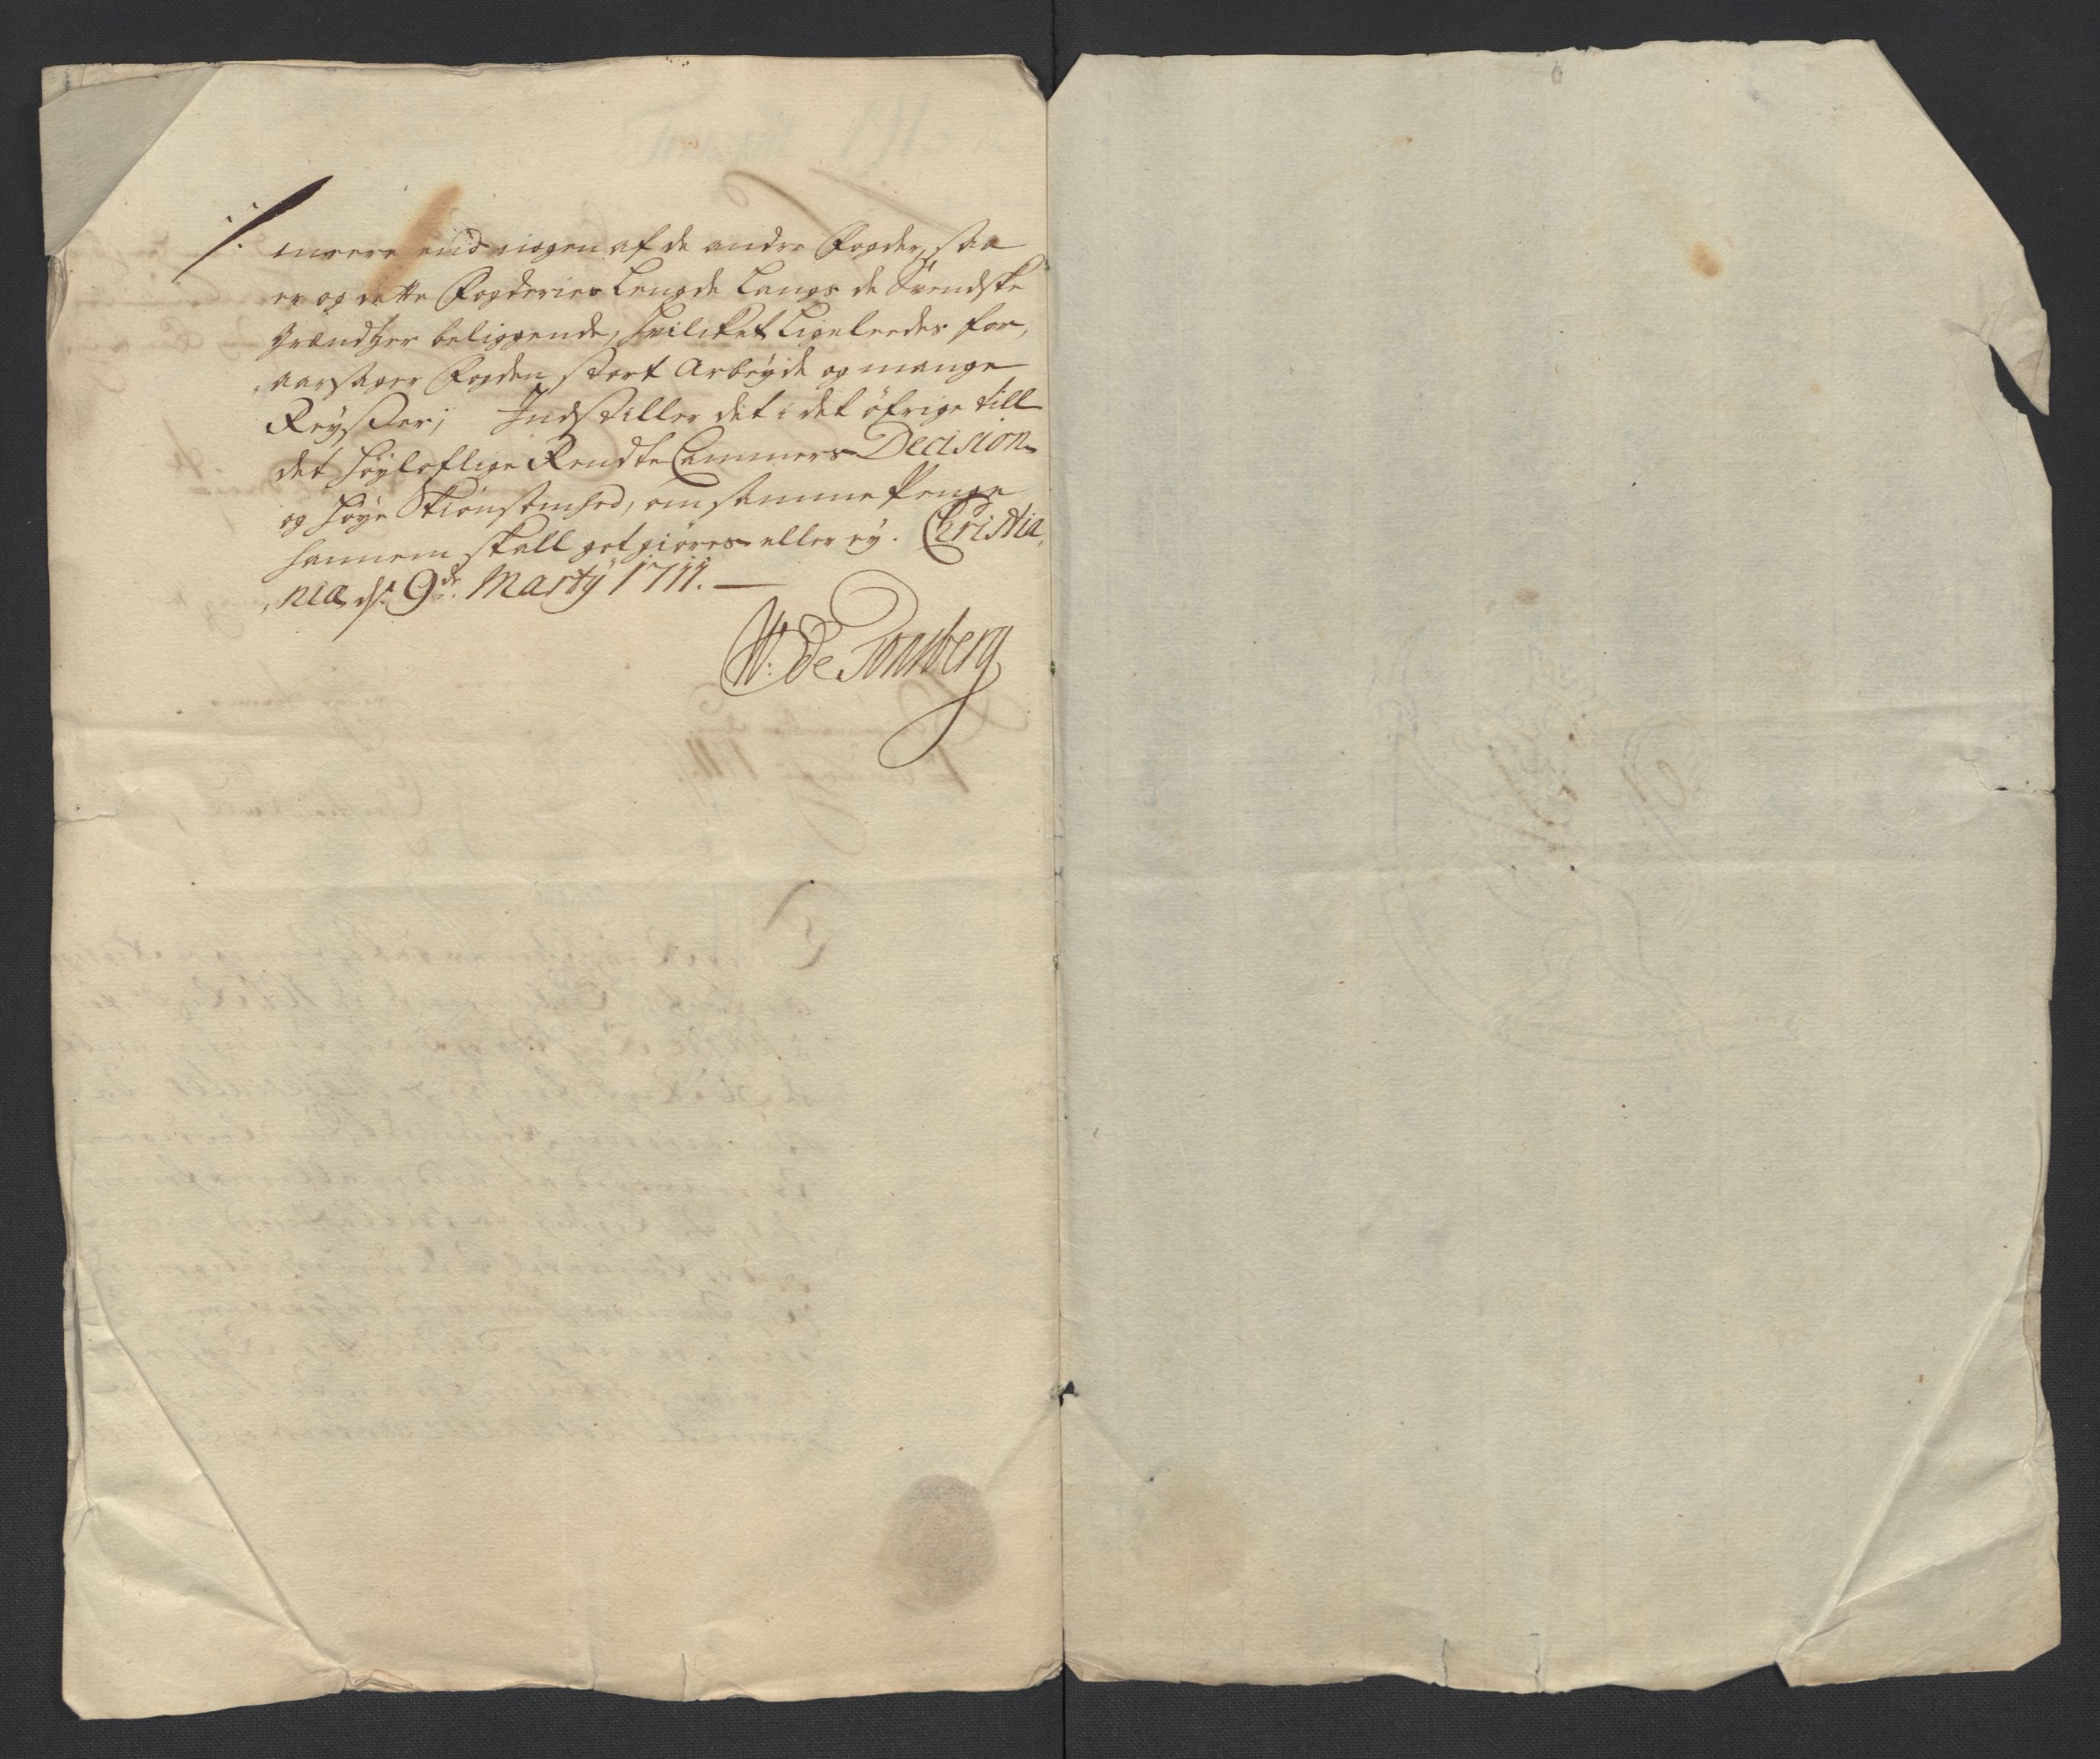 meere end nogen af de andre Fogder, saa
er og dette Fogderies Lengde Langs de Svendske
Grændtzer beliggende, hvilcket Ligeleedes for,
,aarsager Fogden stort Arbeyde og mange
Reyßer; Indstiller det i det öfrige till
det höyloflige Rendte Cammers Decision
og höye Skiönsomhed, om samme Penge
hannem skall gotgiöres eller ey. Christia,
,nia d. 9de. Marty 1711.
W: de Tonsberg